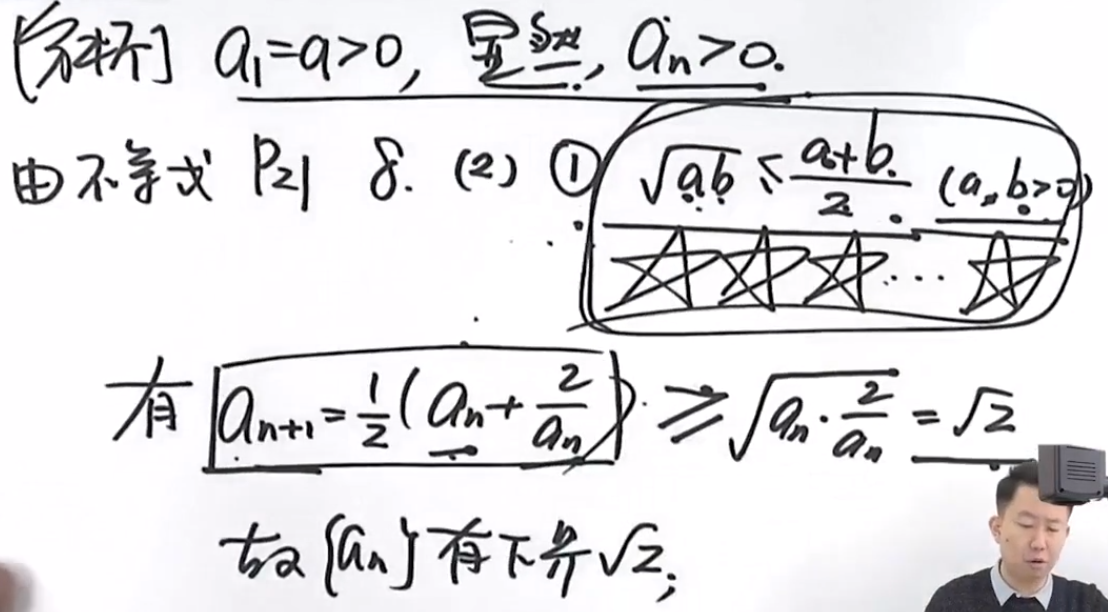 [分析] a₁=a>0, 显然, aₙ>0.
由不等式 P21 8. (2) ① √ab ≤ (a+b)/2 (a,b>0)
☆☆☆……☆
有 aₙ₊₁=1/2(aₙ+2/aₙ) ≥ √(aₙ·2/aₙ) = √2
故{aₙ}有下界√2;